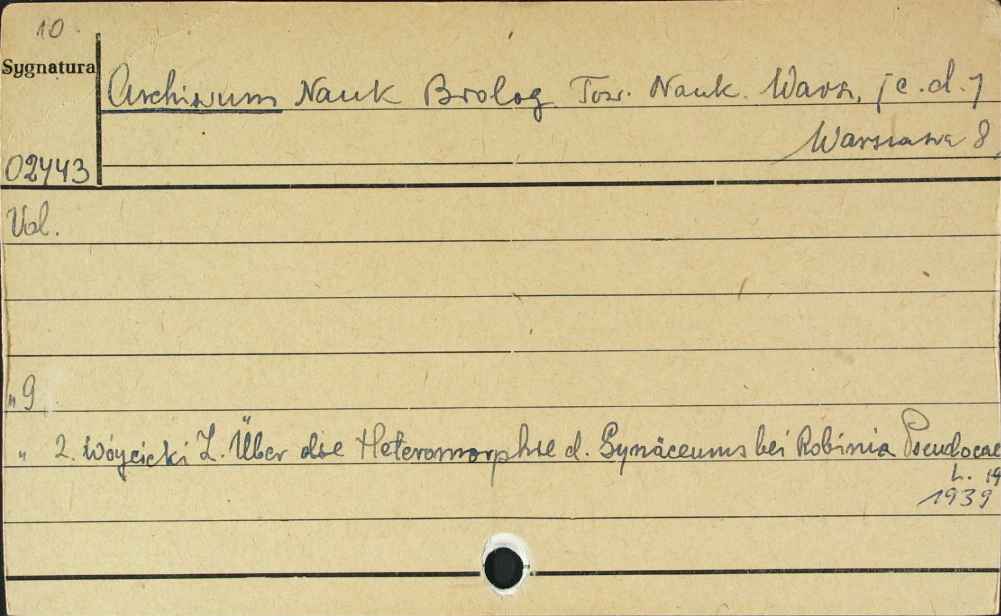 10.
Sygnatura
Archiwum Nauk Biolog Tow. Nauk. Warsz. [c.d.]
Warszawa 8.
02443
Vol.
„ 9
„ 2. Wóycicki Z. Über die Heteromorphie d. Gynäceums bei Robinia Pseudocac
L. 19
1939